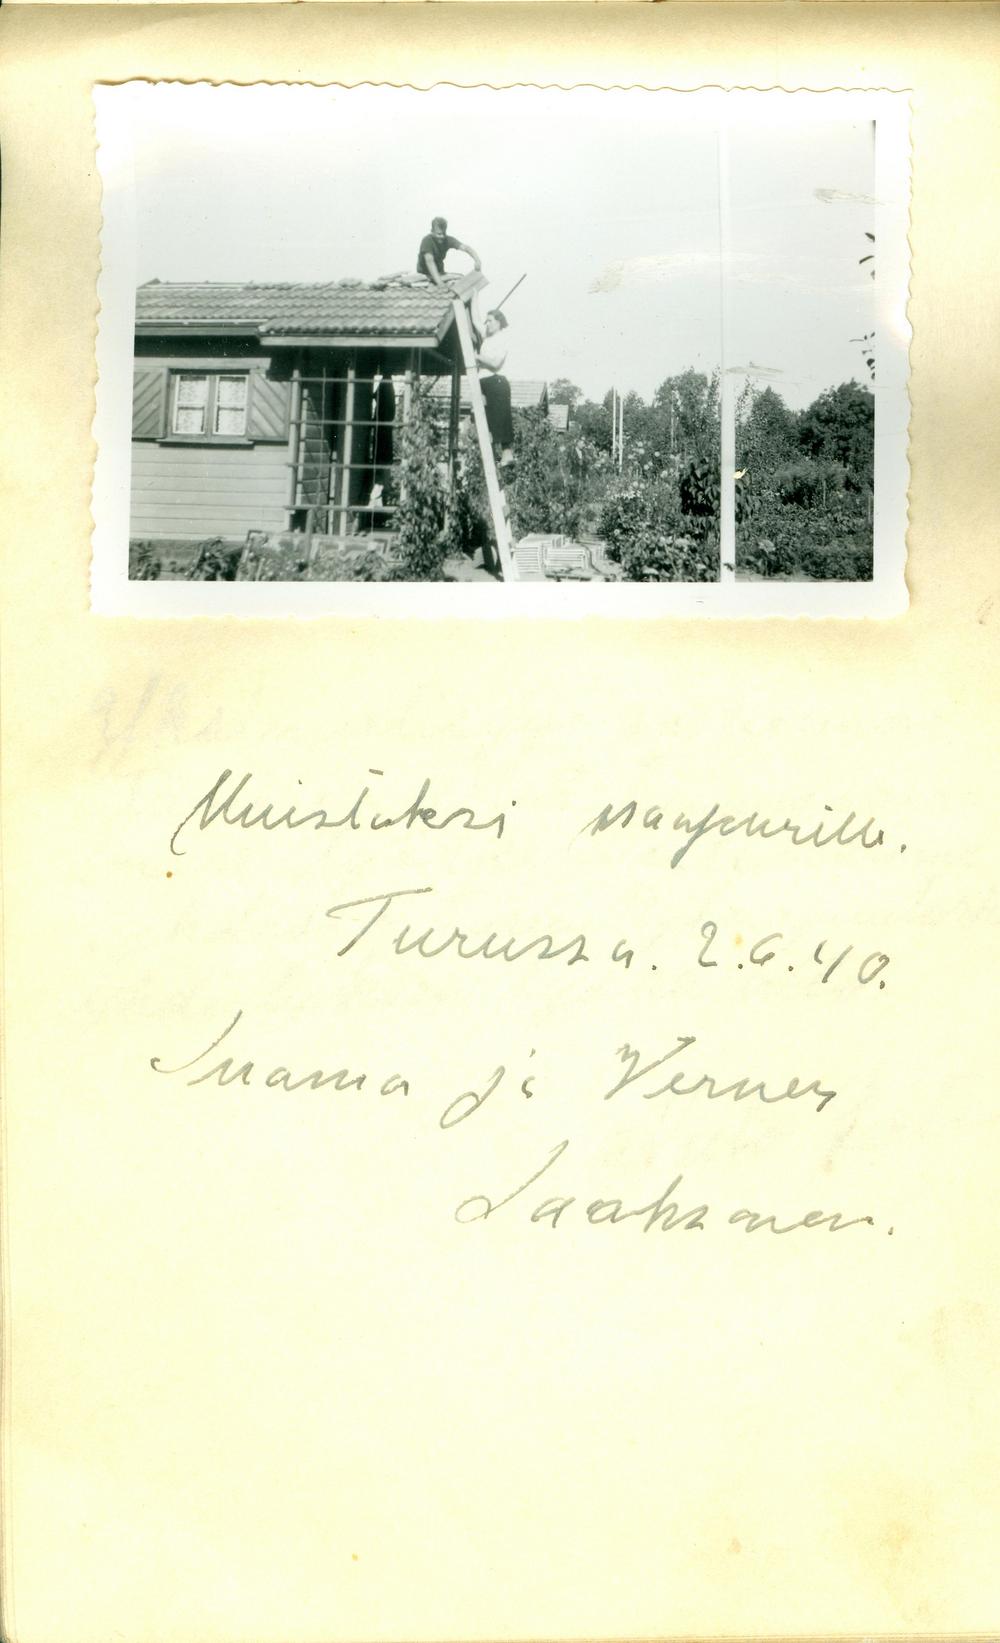 Muistoksi naapurille.
Turussa. 2.6.40.
ja Verner
Laaksonen.